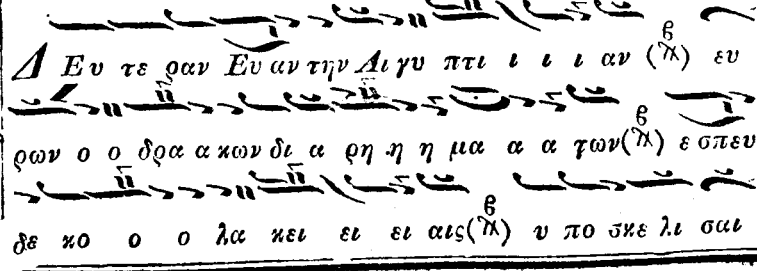 Δ Ευ τε ραν Ευ αν την Αι γυ πτι ι ι ι αν (ϗ) ευ
ρων ο ο δρα α κων δι α ρη η η μα α α των (ϗ) ε σπευ
δε κο ο ο λα κει ει ει αις (ϗ) υ πο σκε λι σαι